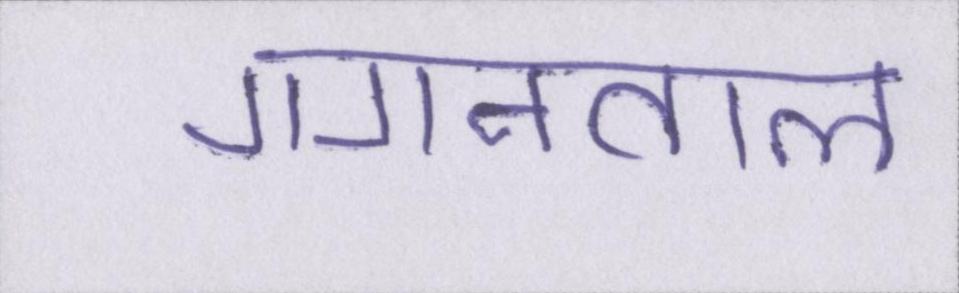 गगनताल